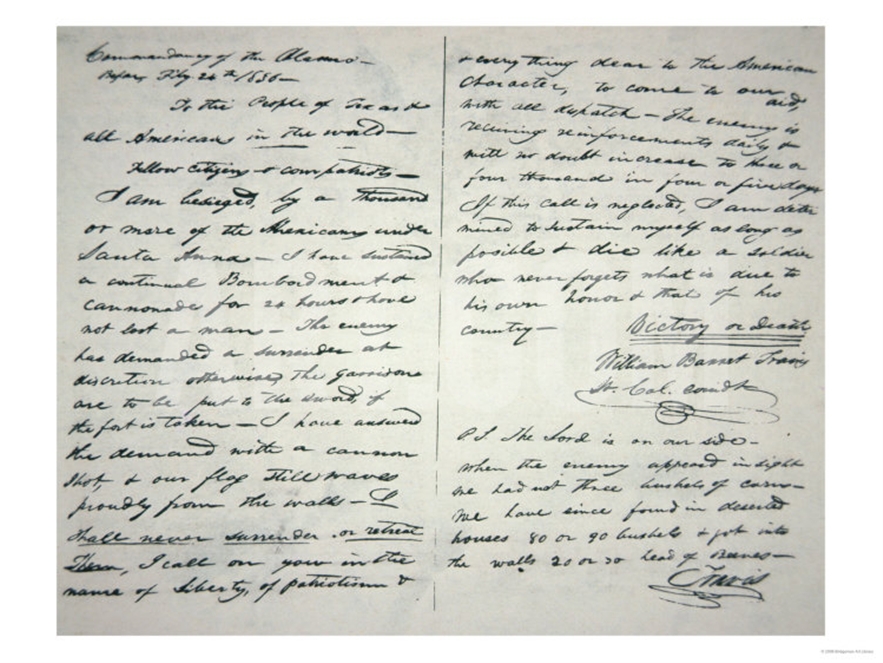 Commandancy of the Alamo—
Bejar, Feby. 24th 1836—
To the People of Texas &
all Americans in the world—
Fellow citizens & compatriots—
I am besieged, by a thousand
or more of the Mexicans under
Santa Anna — I have sustained
a continual Bombardment &
cannonade for 24 hours & have
not lost a man — The enemy
has demanded a surrender at
discretion, otherwise, the garrison
are to be put to the sword, if
the fort is taken — I have answered
the demand with a cannon
shot, & our flag still waves
proudly from the walls — I
shall never surrender or retreat
Then, I call on you in the
name of Liberty, of patriotism &
& every thing dear to the American
character, to come to our aid,
with all dispatch — The enemy is
receiving reinforcements daily &
will no doubt increase to three or
four thousand in four or five days
If this call is neglected, I am deter
mined to sustain myself as long as
possible & die like a soldier
who never forgets what is due to
his own honor & that of his
country—
Victory or Death
William Barret Travis
Lt. Col. comdt
P.S. The Lord is on our side—
when the enemy appeared in sight
we had not three bushels of corn—
We have since found in deserted
houses 80 or 90 bushels & got into
the walls 20 or 30 head of Beeves—
Travis